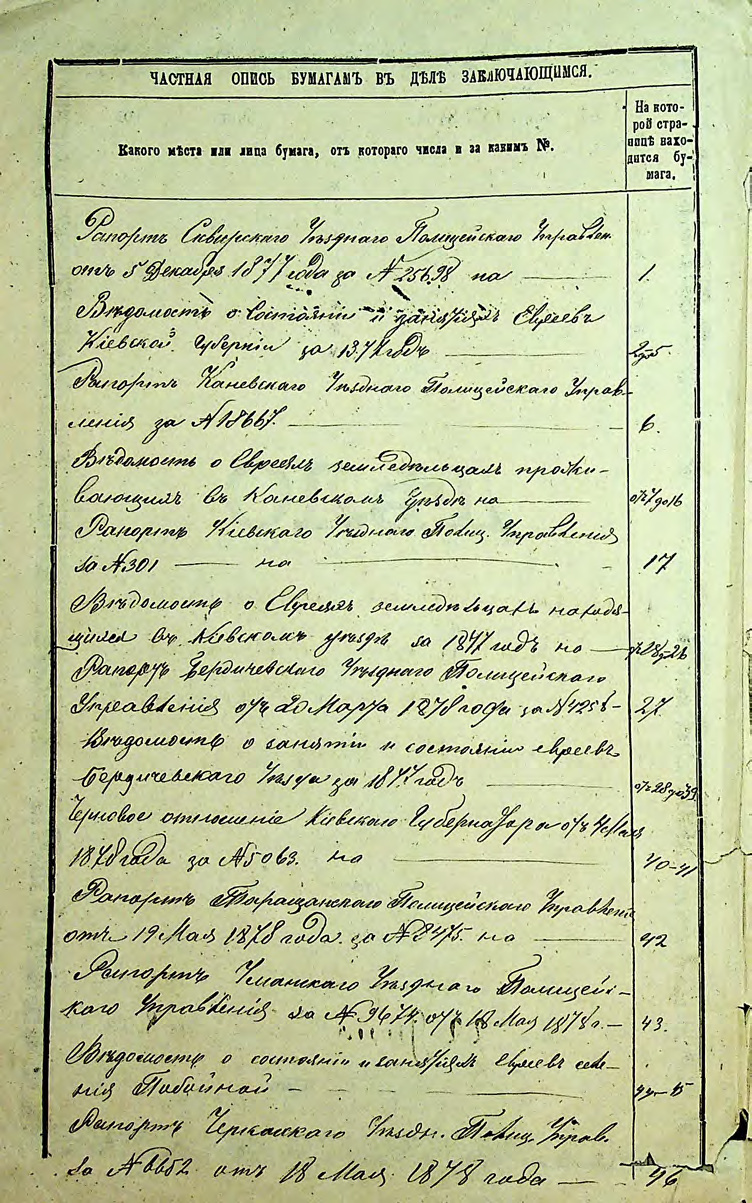 ЧАСТНАЯ ОПИСЬ БУМАГАМЪ ВЪ ДѢЛѢ ЗАКЛЮЧАЮЩИМСЯ.
Какого мѣста или лица бумага, отъ котораго числа и за какимъ №.
На кото-
рой стра-
ницѣ нахо-
дится бу-
мага.
Рапортъ Сквирскаго Уѣзднаго Полицейскаго Управлен.
отъ 5 Декабря 1877 года за № 25698 на — 1.
Вѣдомость о состояніи и занятіяхъ Евреевъ
Кіевской Губерніи за годъ —
Рапортъ Каневскаго Уѣзднаго Полицейскаго Управ-
ленія за № 18667. — 6.
Вѣдомость о Евреяхъ земледѣльцахъ прожи-
вающихъ въ Каневскомъ Уѣздѣ на — отъ 7 до 16
Рапортъ Кіевскаго Уѣзднаго Полиц. Управленія
за № 301 — на — 17
Вѣдомость о Евреяхъ земледѣльцахъ находя-
щихся въ Кіевскомъ уѣздѣ за 1877 годъ на —
Рапортъ Бердичевскаго Уѣзднаго Полицейскаго
Управленія отъ 20 Марта 1878 года за № 4258 — 27.
Вѣдомость о занятіи и состояніи евреевъ
Бердичевскаго Уѣзда за 1877 годъ — отъ 28 до 39
Черновое отношеніе Кіевскаго Губернатора отъ 4 Мая
1878 года за № 5063. на — 40-41
Рапортъ Таращанскаго Полицейскаго Управленія
отъ 19 Мая 1878 года за № 2475. на — 42
Рапортъ Уманскаго Уѣзднаго Полицейс-
каго Управленія за № 9674 отъ 18 Мая 1878 г. — 43.
Вѣдомость о состояніи и занятіяхъ Евреевъ селе-
нія —
Рапортъ Черкасскаго Уѣздн. Полиц. Управ.
за № 6652 отъ 18 Мая 1878 года — 46